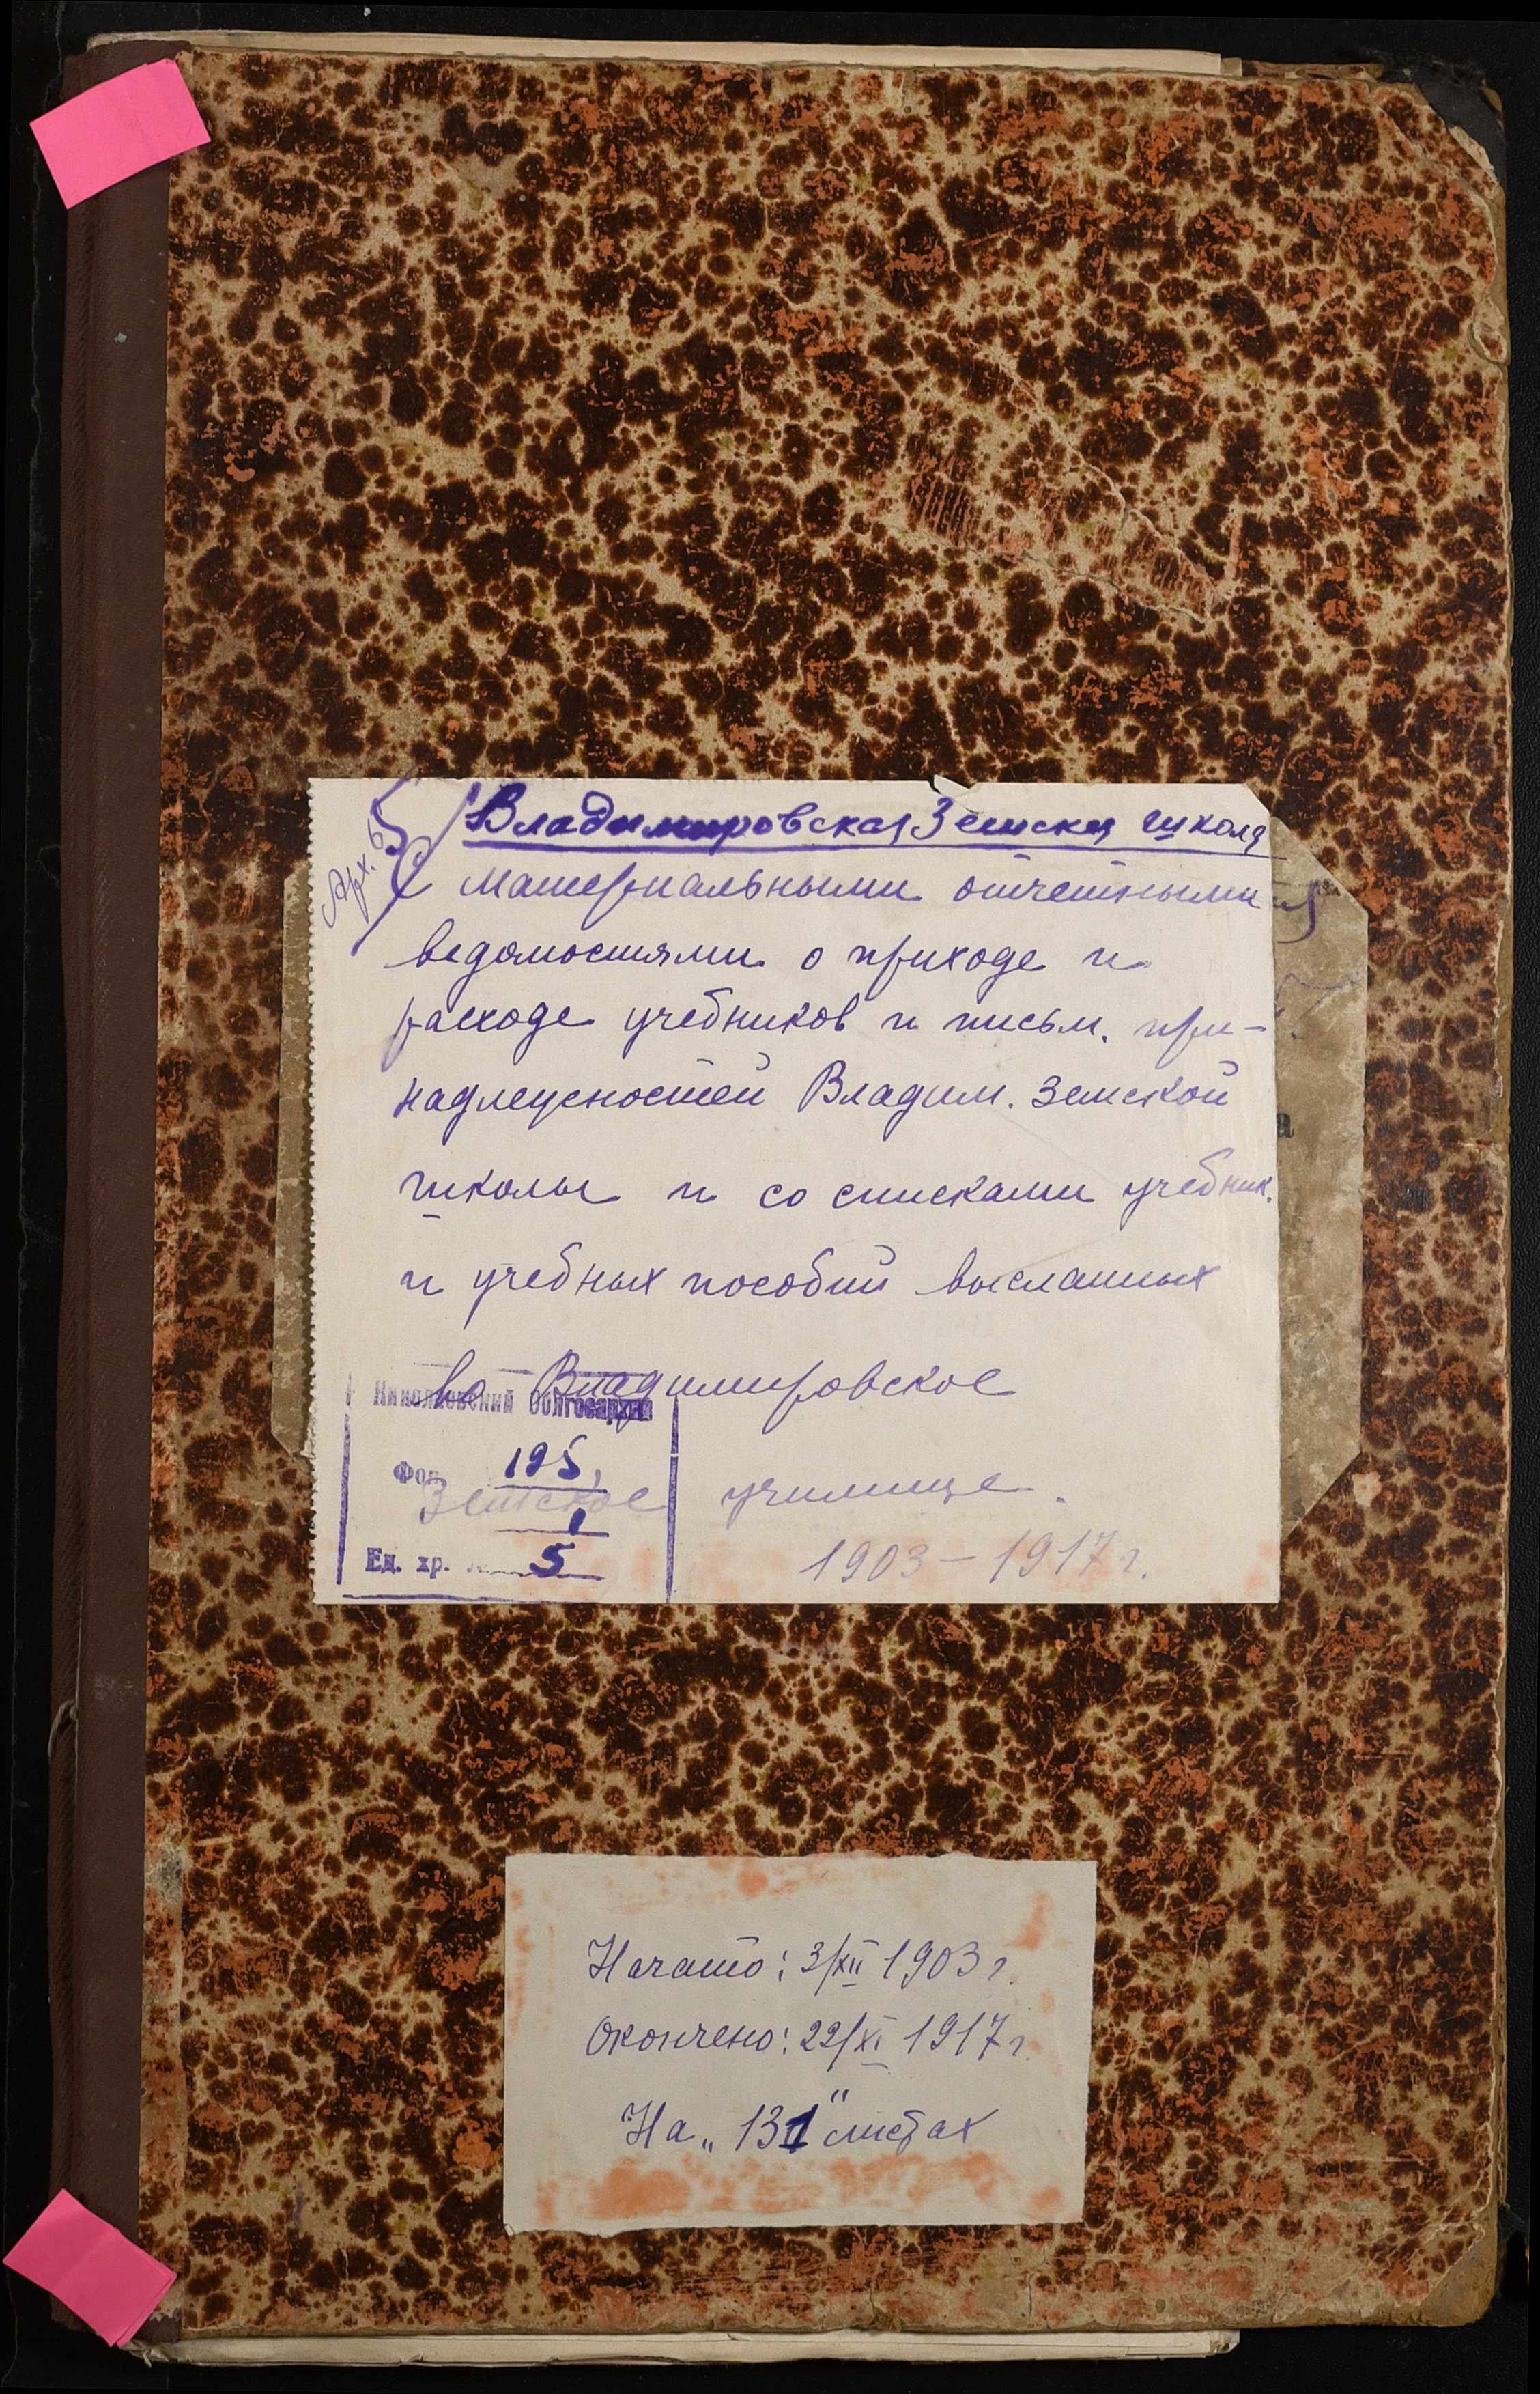 Арх. 65
Владимировская Земская школа
С материальными отчетными
ведомостями о приходе и
расходе учебников и письм. при-
надлежностей Владим. Земской
школы и со списками учебник.
и учебных пособий высланных
во Владимировское
Николаевский Облгосархив
Фон 195
Земское училище.
1
Ед. хр. 5
1903 – 1917 г.
а
Начато: 3/XII 1903 г.
Окончено: 22/XI 1917 г.
На „131" листах